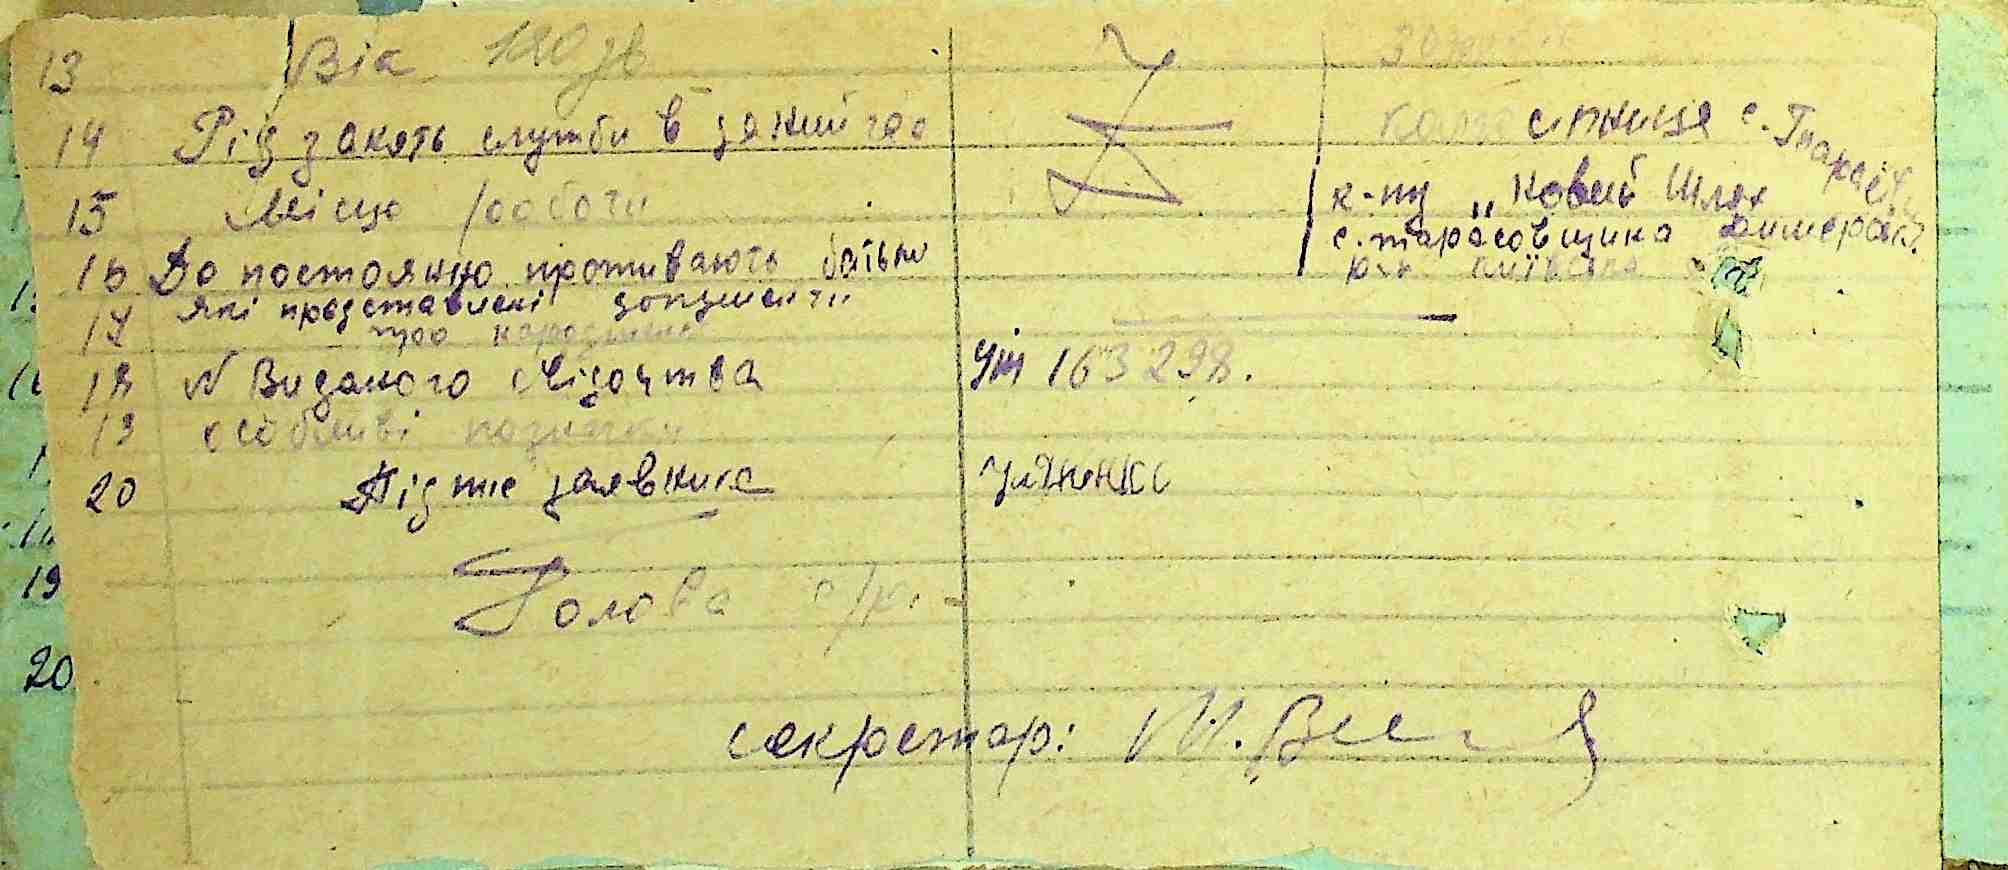 13 Вік
14 Рід занять служби в даний час
колгоспниця с.
15 Місце роботи
к-пу „Новий Шлях
с. Тарасовщина Димерськ.
16 Де постоянно проживають батьки
р-н Київська
17 Які представлені документи
про народженя
18 № Виданого свідоцтва УЖ 163298.
19 особливі позначки
20 Підпис заявника
Голова с/р. -
секретар:
19
20